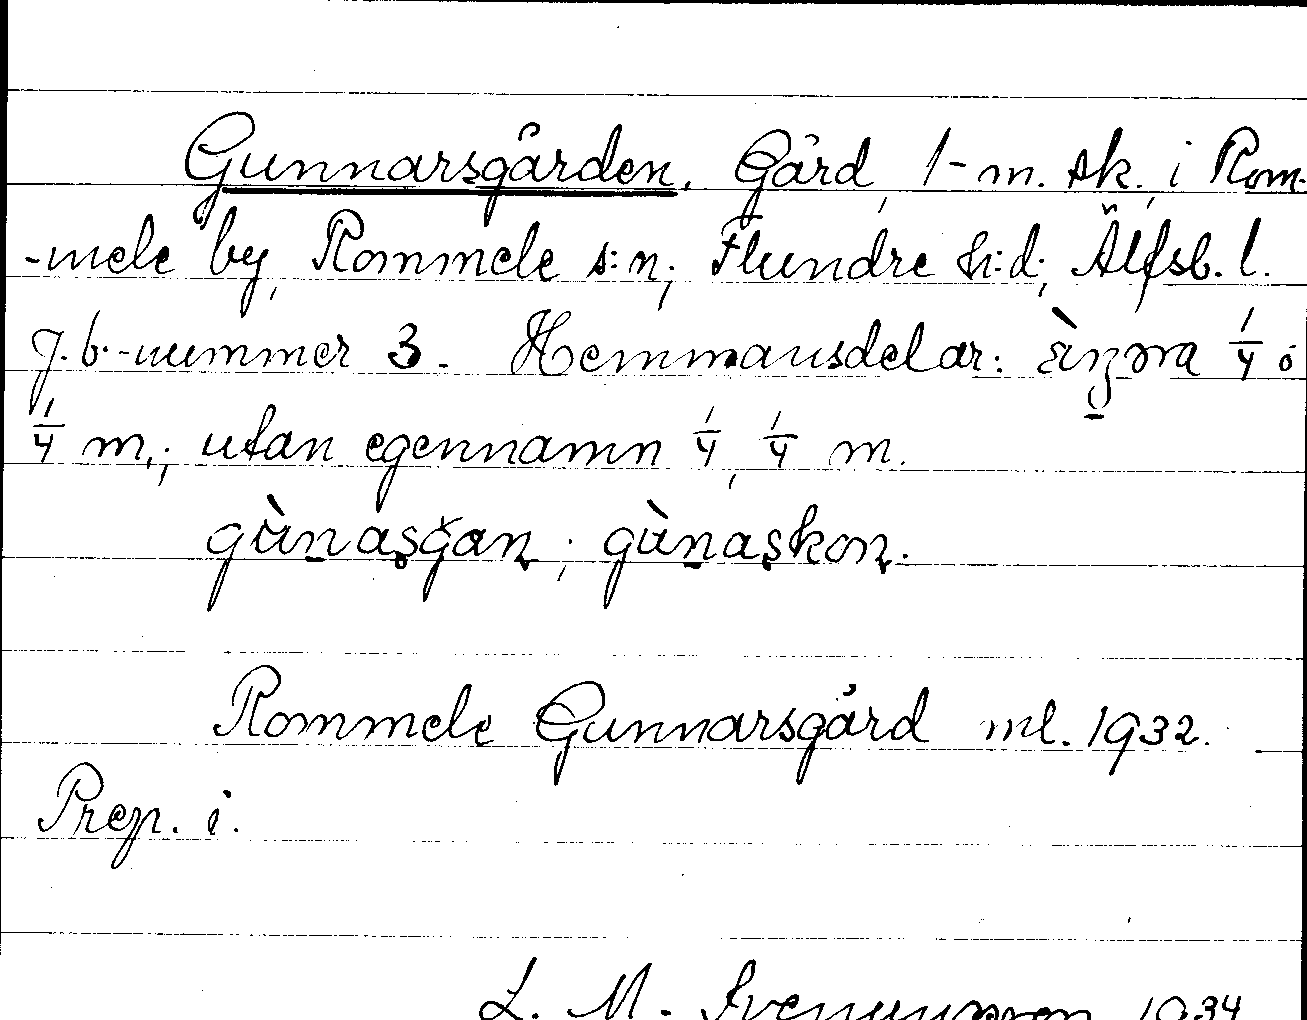 Gunnarsgården. Gård, 1-m. sk., i Rom-
-mele by, Rommele s:n, Flundre h:d, Älfsb. l.
J.b.-nummer 3. Hemmansdelar: 1/4 o
1/4 m.; utan egennamn 1/4, 1/4 m.
gùnasgan; gùnaskon.
Rommele Gunnarsgård ml. 1932.
Prep. i.
L. M. 1934